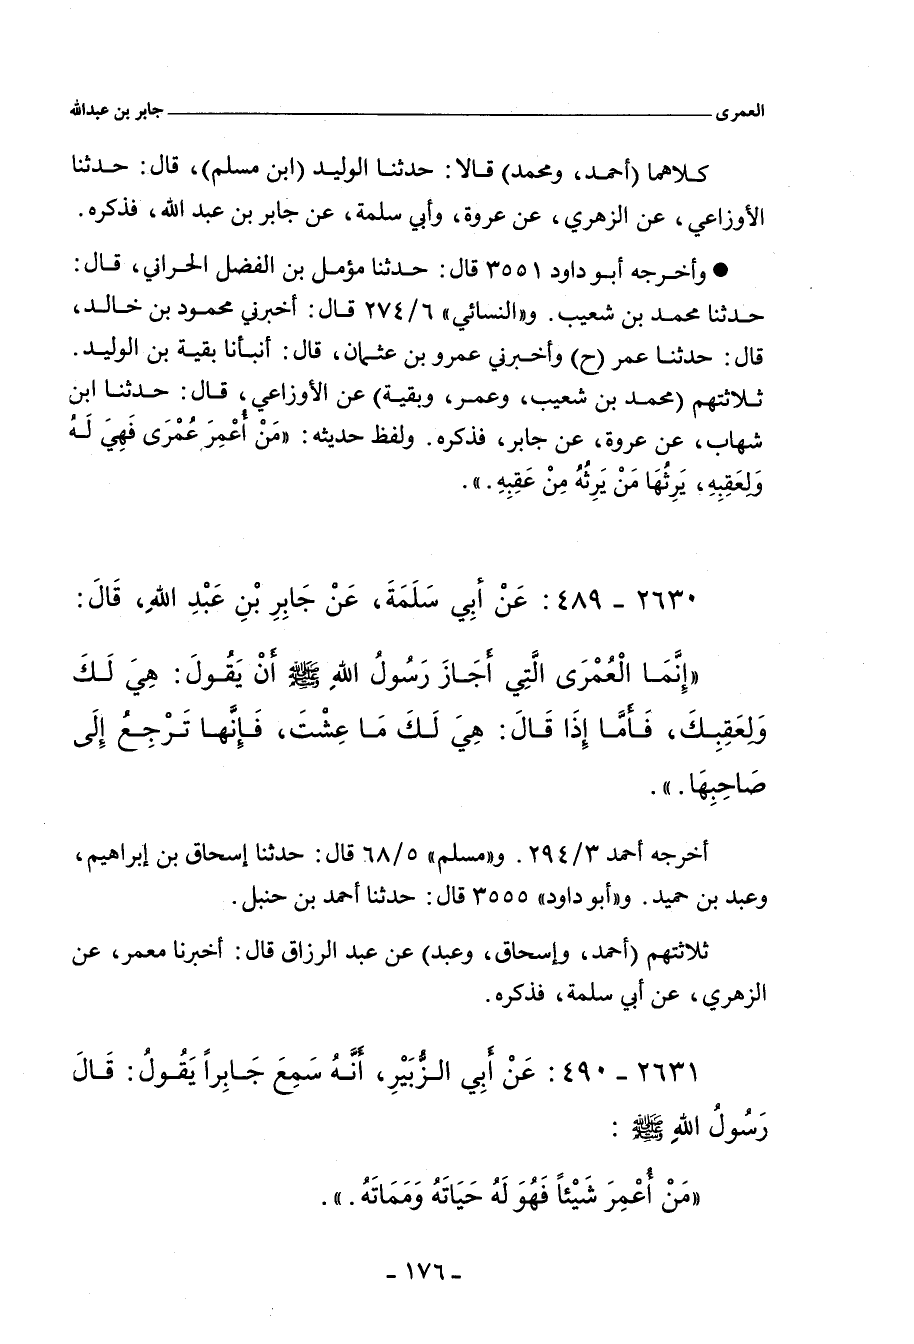 العمرى ــــــــــــــــــــ جابر بن عبدالله
كلاهما (أحمد، ومحمد) قالا: حدثنا الوليد (ابن مسلم)، قال: حدثنا
الأوزاعي، عن الزهري، عن عروة، وأبي سلمة، عن جابر بن عبد الله، فذكره.
● وأخرجه أبو داود ٣٥٥١ قال: حدثنا مؤمل بن الفضل الحراني، قال:
حدثنا محمد بن شعيب. و«النسائي» ٢٧٤/٦ قال: أخبرني محمود بن خالد،
قال: حدثنا عمر (ح) وأخبرني عمرو بن عثمان، قال: أنبأنا بقية بن الوليد.
ثلاثتهم (محمد بن شعيب، وعمر، وبقية) عن الأوزاعي، قال: حدثنا ابن
شهاب، عن عروة، عن جابر، فذكره. ولفظ حديثه: «مَنْ أُعْمِرَ عُمْرَى فَهِيَ لَهُ
وَلِعَقِبِهِ، يَرِثُهَا مَنْ يَرِثُهُ مِنْ عَقِبِهِ.».
٢٦٣٠ - ٤٨٩: عَنْ أَبِي سَلَمَةَ، عَنْ جَابِرِ بْنِ عَبْدِ اللهِ، قَالَ:
«إِنَّمَا الْعُمْرَى الَّتِي أَجَازَ رَسُولُ اللهِ ﷺ أَنْ يَقُولَ: هِيَ لَكَ
وَلِعَقِبِكَ، فَأَمَّا إِذَا قَالَ: هِيَ لَكَ مَا عِشْتَ، فَإِنَّها تَرْجِعُ إِلَى
صَاحِبِهَا.».
أخرجه أحمد ٢٩٤/٣. و«مسلم» ٦٨/٥ قال: حدثنا إسحاق بن إبراهيم،
وعبد بن حميد. و«أبو داود» ٣٥٥٥ قال: حدثنا أحمد بن حنبل.
ثلاثتهم (أحمد، وإسحاق، وعبد) عن عبد الرزاق قال: أخبرنا معمر، عن
الزهري، عن أبي سلمة، فذكره.
٢٦٣١ - ٤٩٠: عَنْ أَبِي الزُّبَيْرِ، أَنَّهُ سَمِعَ جَابِراً يَقُولُ: قَالَ
رَسُولُ اللهِ ﷺ:
«مَنْ أُعْمِرَ شَيْئاً فَهُوَ لَهُ حَيَاتَهُ وَمَمَاتَهُ.».
- ١٧٦ -